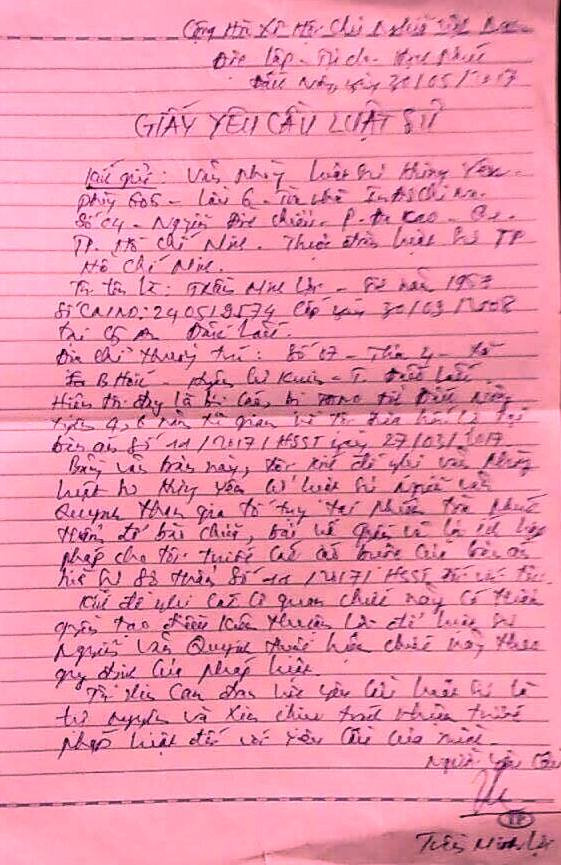 Cộng Hòa Xã Hội Chủ Nghĩa Việt Nam
Độc lập - Tự do - Hạnh Phúc
ngày 30/05/2017
GIẤY YÊU CẦU LUẬT SƯ
Kính gửi: Văn phòng luật sư Hưng Yên
phòng 605 - Lầu 6 - Tòa nhà
Số 04 - Nguyễn Đình Chiểu - P. Đa Kao - Q1.
TP. Hồ Chí Minh. Thuộc đoàn luật sư TP
Hồ Chí Minh.
Tôi tên là: Trần Minh Lợi - Sinh năm 1957
Số CMND: 240519574 Cấp ngày 30/09/2008
Tại CA Đắk Lắk
Địa chỉ thường trú: Số 07 - Thôn 4 - Xã
- huyện Cư Kuin - T. Đắk Lắk.
Hiện tôi đang là bị cáo bị TAND tỉnh Đắk Nông
tuyên 4,6 năm tù tại
bản án Số 11/2017/HSST ngày 27/03/2017
Bằng văn bản này, tôi kính đề nghị văn phòng
luật sư Hưng Yên cử luật sư Nguyễn Văn
Quynh tham gia tố tụng tại phiên tòa phúc
thẩm để bào chữa, bảo vệ quyền và lợi ích hợp
pháp cho tôi trước của bản án
hình sự sơ thẩm Số 11/2017/HSST đối với tôi.
Kính đề nghị các cơ quan chức năng có thẩm
quyền tạo điều kiện thuận lợi để luật sư
Nguyễn Văn Quynh thực hiện chức năng theo
quy định của pháp luật.
Tôi xin cam đoan việc yêu cầu luật sư là
tự nguyện và xin chịu trách nhiệm trước
pháp luật đối với yêu cầu của mình.
Người yêu cầu
Trần Minh Lợi